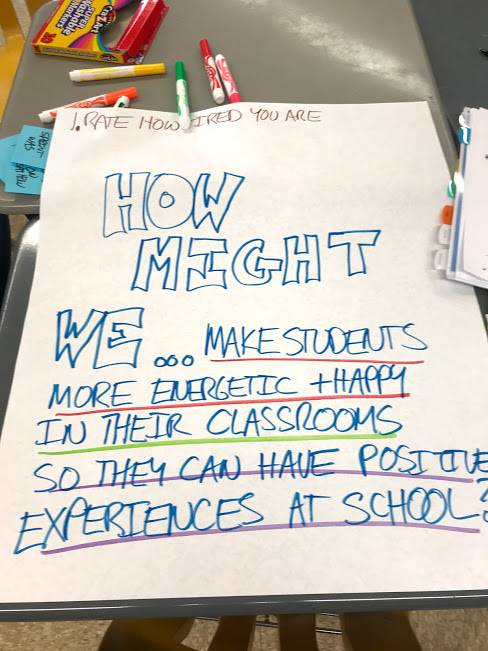 CRA-Z-ART
SUPER
Washable
Markers
1. RATE HOW TIRED YOU ARE
HOW
MIGHT
WE... MAKE STUDENTS
MORE ENERGETIC + HAPPY
IN THEIR CLASSROOMS
SO THEY CAN HAVE POSITIVE
EXPERIENCES AT SCHOOL?